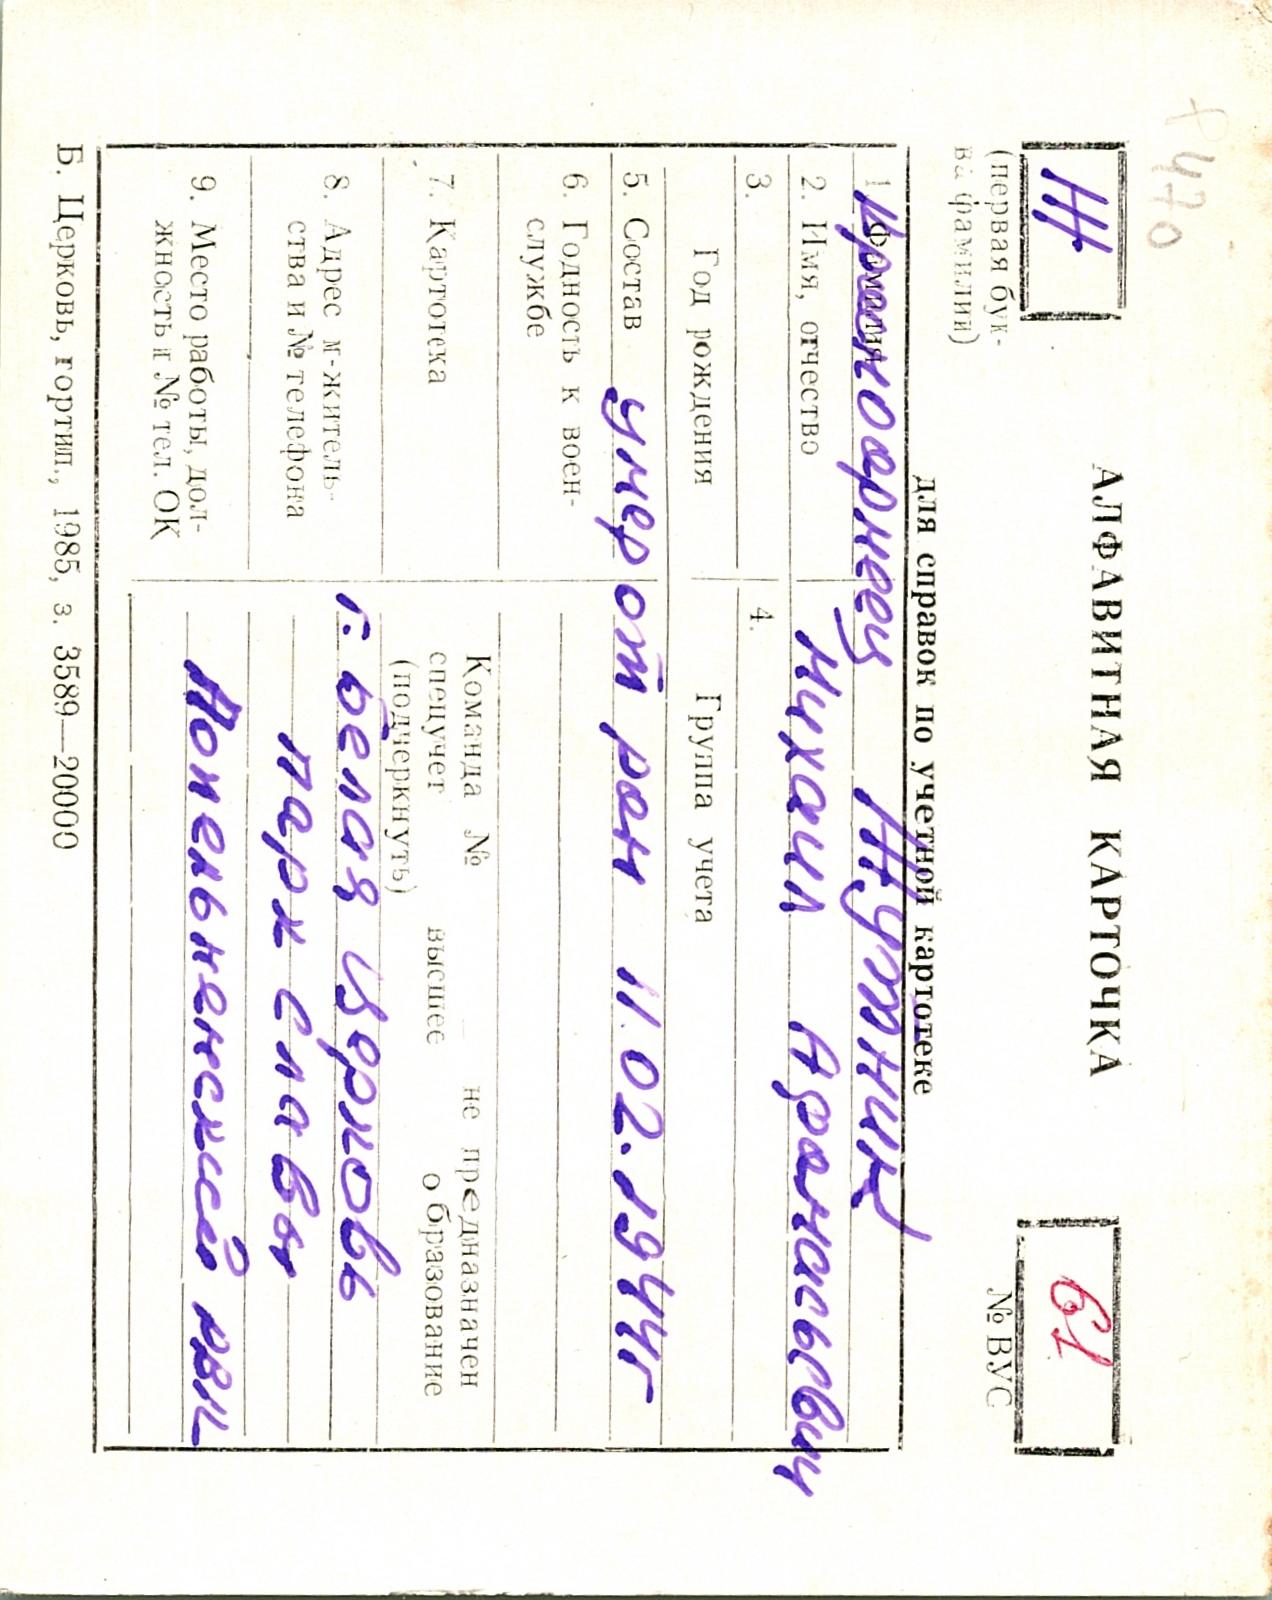 Р470
Ж
(первая бук-
ва фамилии)
АЛФАВИТНАЯ КАРТОЧКА
для справок по учетной картотеке
61
№ ВУС
1. Фамилия Красноармеец Жутник
2. Имя, отчество Михаил Афанасьевич
3. Год рождения
4. Группа учета
5. Состав умер от ран 11.02.1944г
6. Годность к воен-
службе
7. Картотека
Команда № не предназначен
спецучет высшее образование
(подчеркнуть)
8. Адрес м-житель-
ства и № телефона
г. Белая Церковь
парк Славы
9. Место работы, дол-
жность и № тел. ОК
РВК
Б. Церковь, гортип., 1985, з. 3589—20000